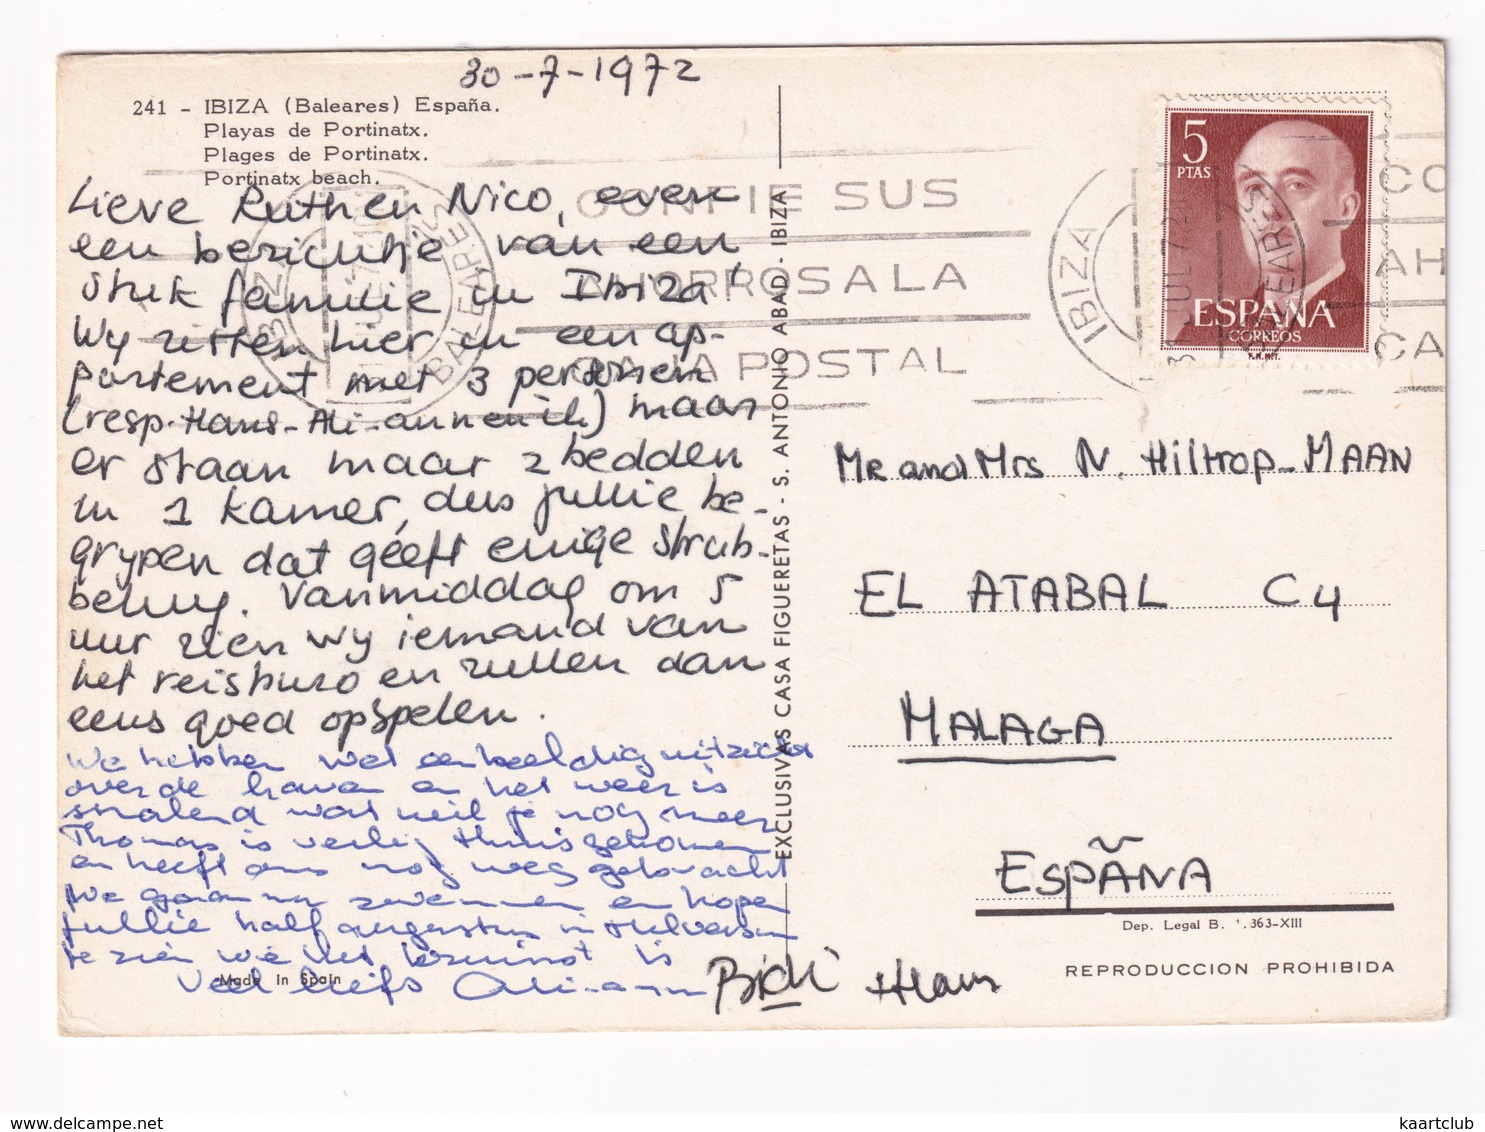 30-7-1972
241 - IBIZA (Baleares) España.
Playas de Portinatx.
Plages de Portinatx.
Portinatx beach.
Lieve Ruth en Nico, even
een berichtje van een
stuk familie in Ibiza!
Wy zitten hier in een ap-
partement met 3 personen
(resp. Hans - Ali - annemiek) maar
er staan maar 2 bedden
in 1 kamer, dus jullie be-
grypen dat geeft enige strub-
beling. Vanmiddag om 5
uur zien wy iemand van
het reisburo en zullen dan
eens goed opspelen.
We hebben wel een beeldig uitzicht
over de haven en het weer is
stralend wat wil je nog meer
Thomas is veilig thuisgekomen
en heeft ons nog weg gebracht
We gaan nu zwemmen en hopen
jullie half augustus in Hilversum
te zien we het bruinst is
Veel liefs
Hans
Made in Spain
EXCLUSIVAS CASA FIGUERETAS - S. ANTONIO ABAD - IBIZA
CONFIE SUS
AHORROS A LA
CAJA POSTAL
IBIZA
BALEARES
5
PTAS
ESPAÑA
CORREOS
F.N.M.T.
IBIZA
BALEARES
CO
AH
CA
Mr and Mrs N. Hiltrop-MAAN
EL ATABAL C4
MALAGA
ESPAÑA
Dep. Legal B. 363-XIII
REPRODUCCION PROHIBIDA
kaartclub